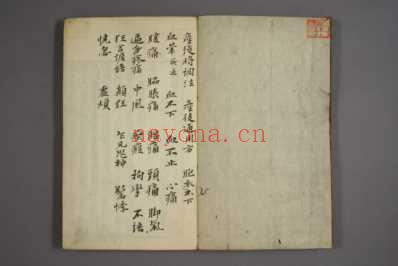 產後將調法 產後通用方 胞衣不下
血暈 血不下 血不止 心痛
腹痛 脇脹痛 腰痛 頭痛 脚氣
遍身疼痛 中風 拘攣 不語
狂言譫語 顛狂 乍見鬼神 驚悸
恍忽 虛煩
asyona.cn